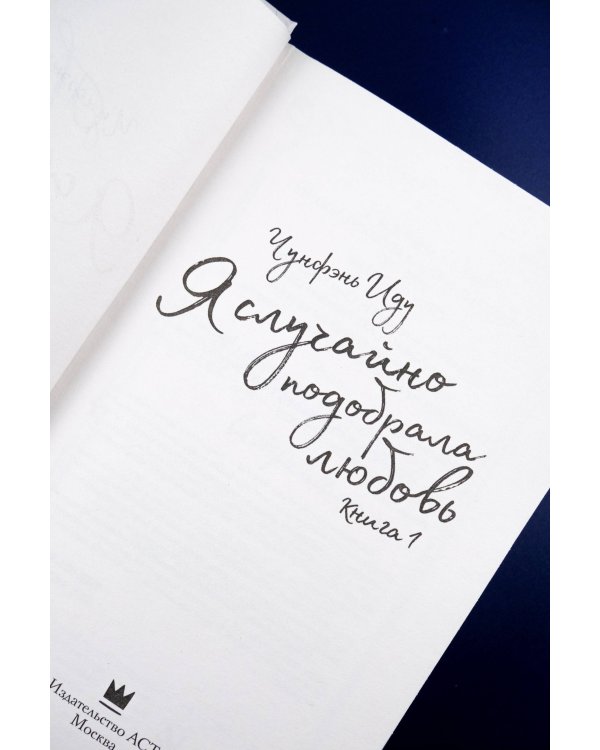 Чунфэнь Иду
Я случайно
подобрала
любовь
Книга 1
Издательство АСТ
Москва